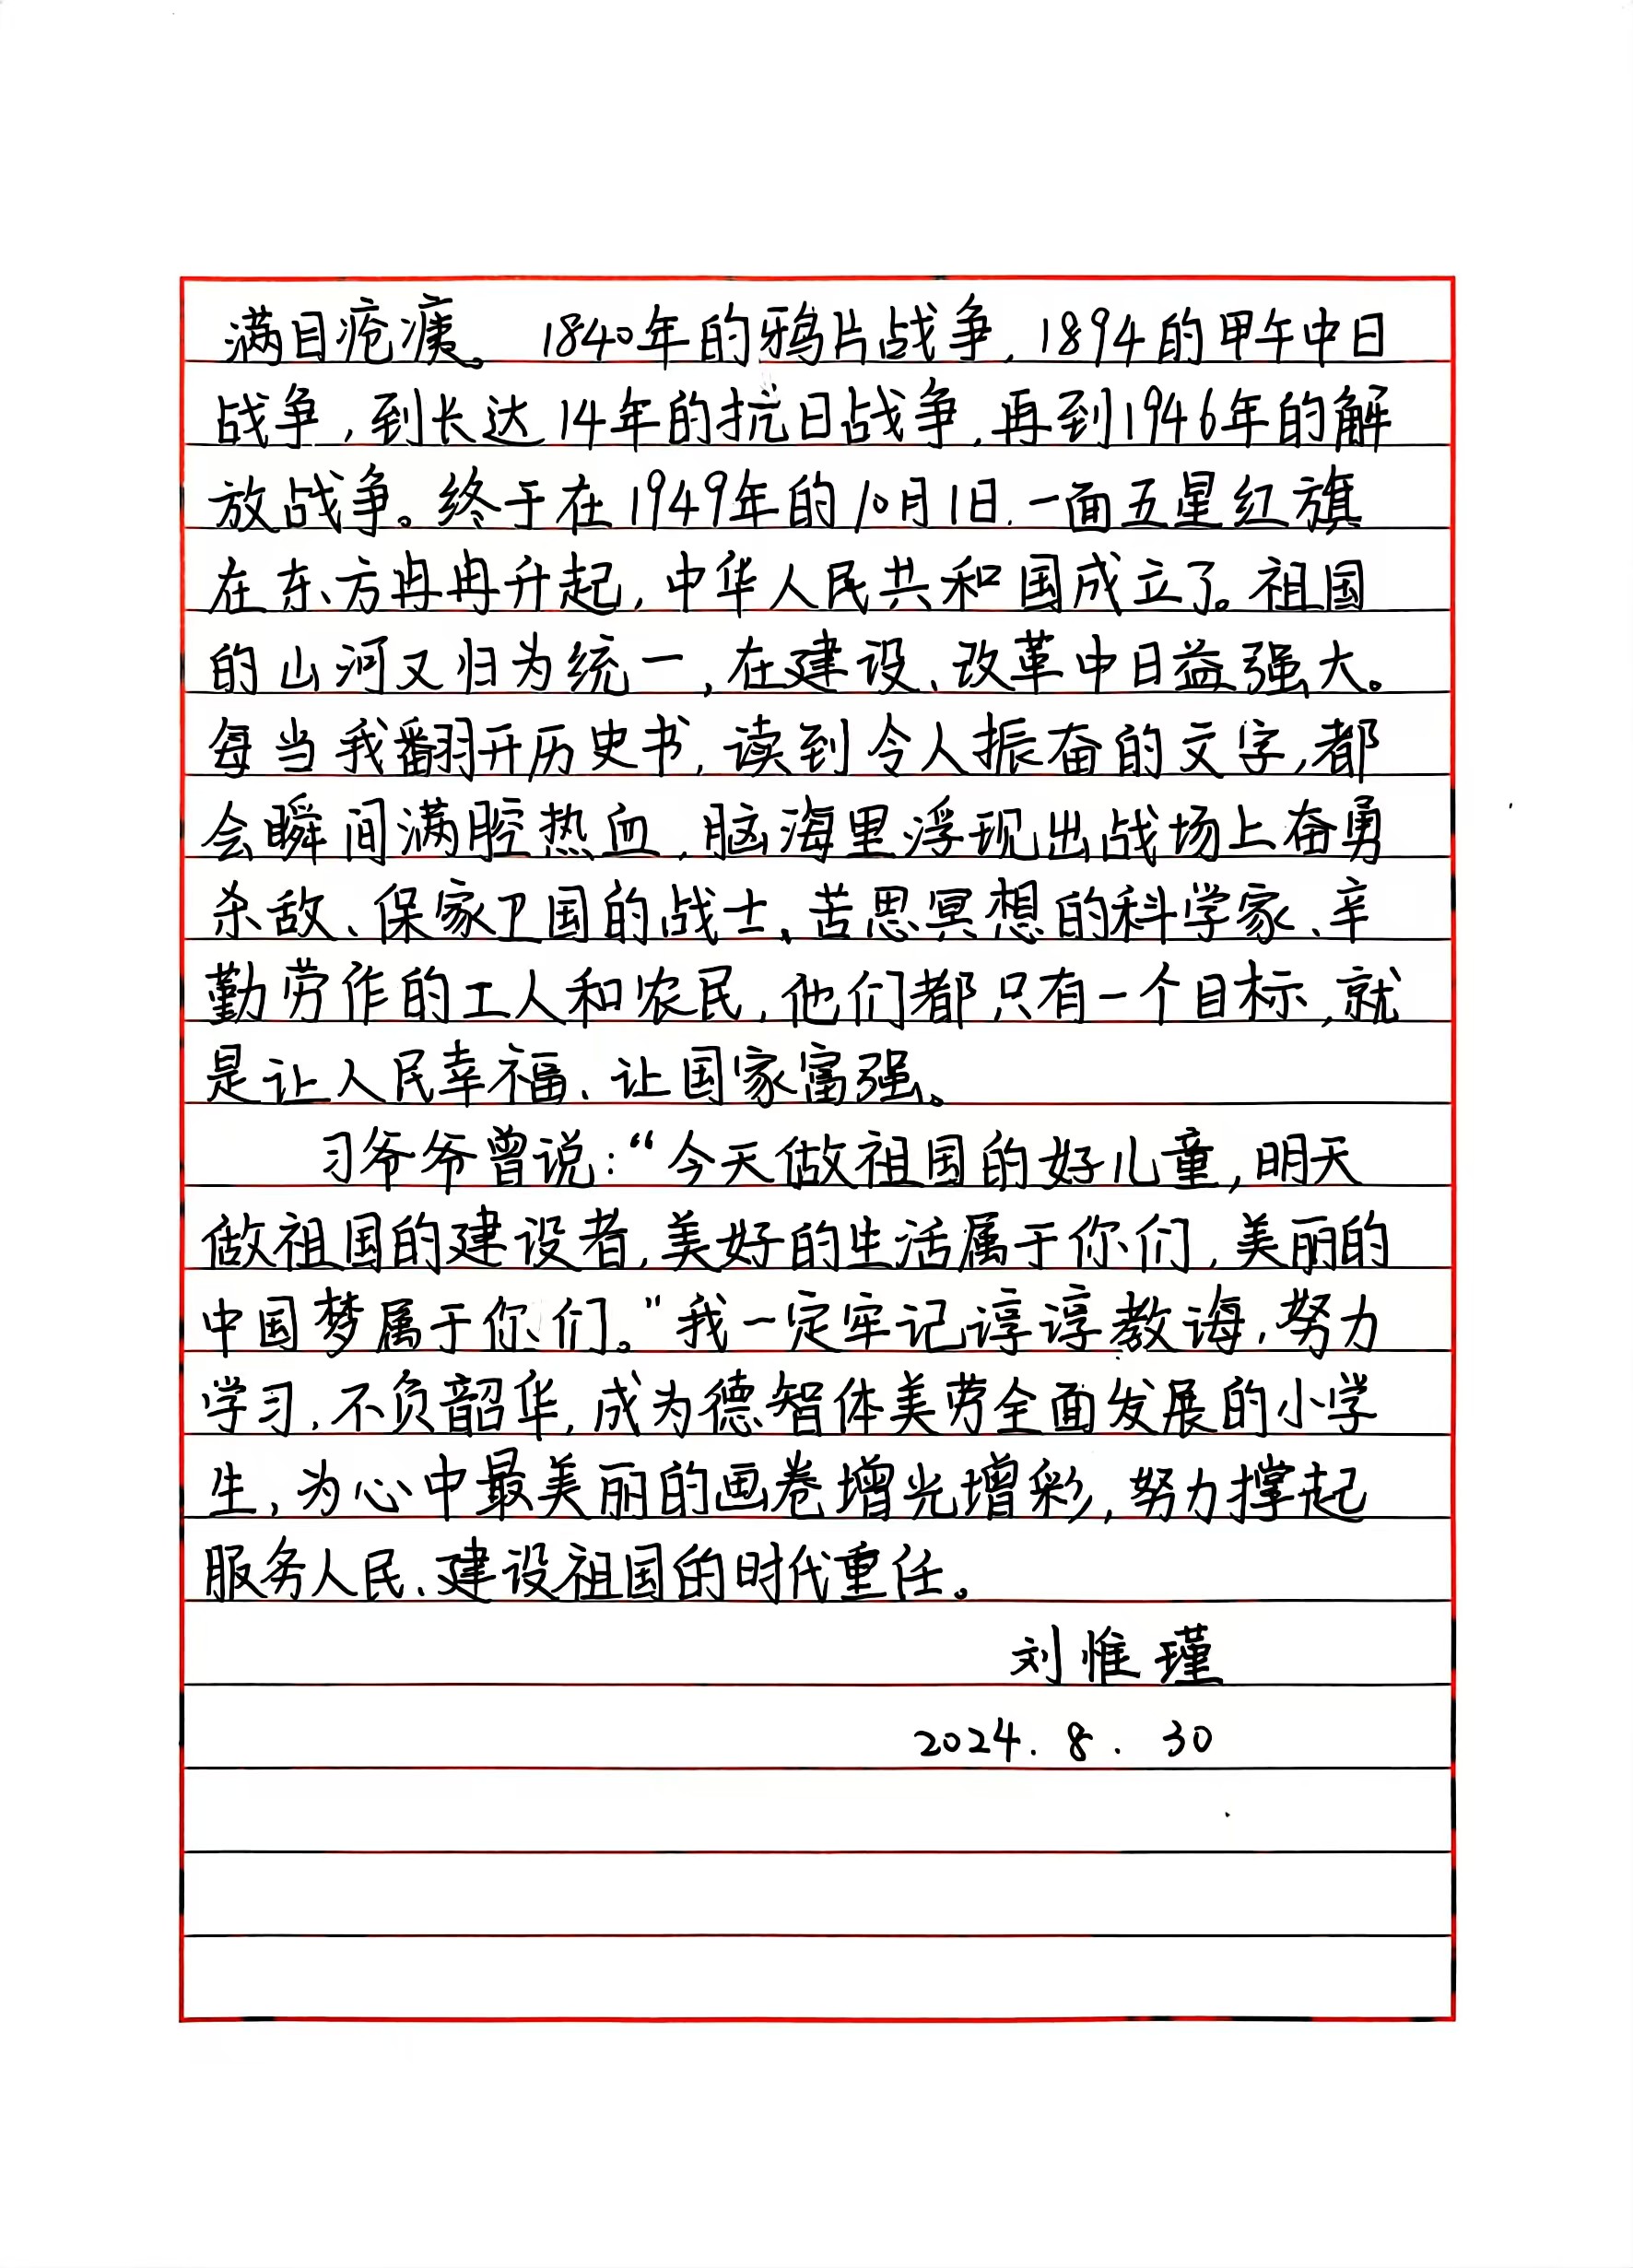 满目疮痍。1840年的鸦片战争,1894的甲午中日
战争,到长达14年的抗日战争,再到1946年的解
放战争。终于在1949年的10月1日,一面五星红旗
在东方冉冉升起,中华人民共和国成立了。祖国
的山河又归为统一,在建设、改革中日益强大。
每当我翻开历史书,读到令人振奋的文字,都
会瞬间满腔热血,脑海里浮现出战场上奋勇
杀敌、保家卫国的战士、苦思冥想的科学家、辛
勤劳作的工人和农民,他们都只有一个目标,就
是让人民幸福、让国家富强。
习爷爷曾说:“今天做祖国的好儿童,明天
做祖国的建设者,美好的生活属于你们,美丽的
中国梦属于你们。”我一定牢记谆谆教诲,努力
学习,不负韶华,成为德智体美劳全面发展的小学
生,为心中最美丽的画卷增光增彩,努力撑起
服务人民、建设祖国的时代重任。
刘惟瑾
2024.8.30